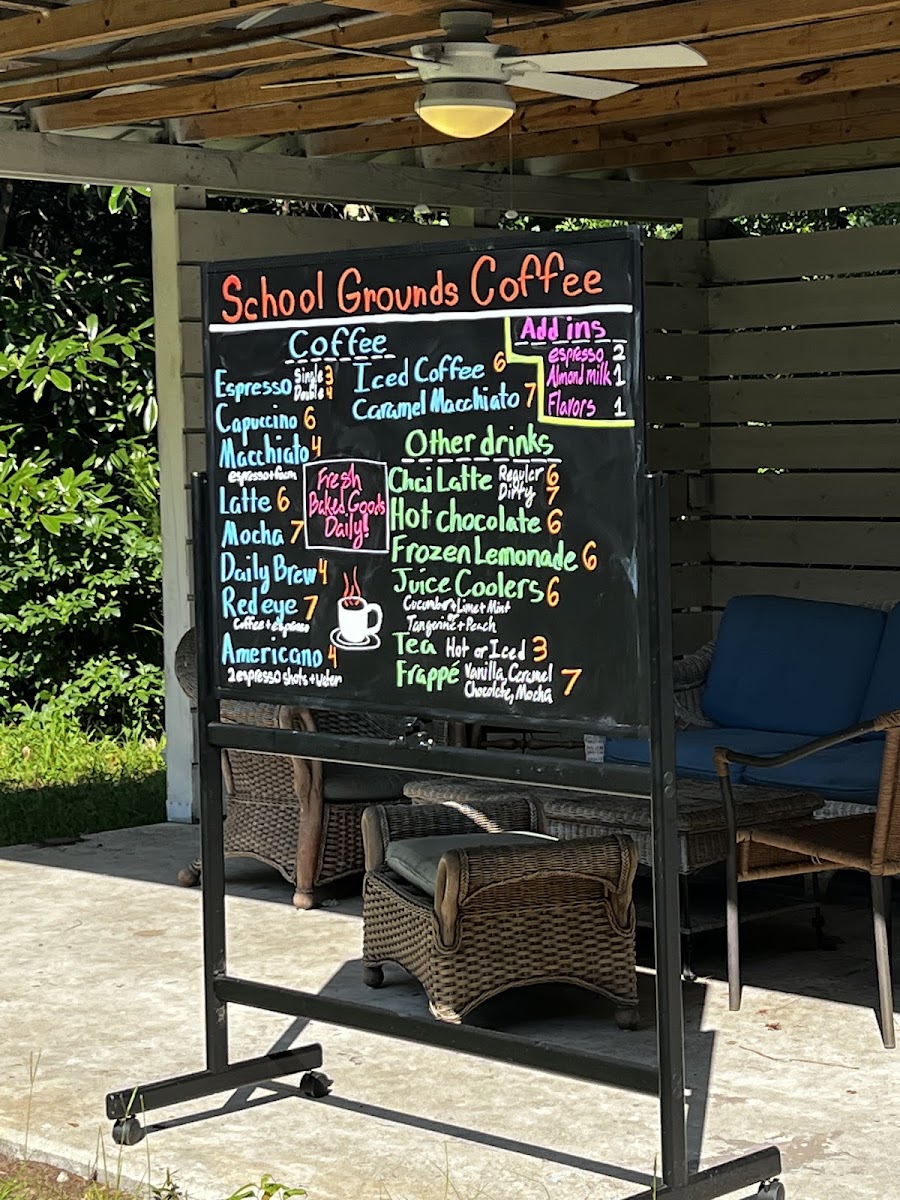 School Grounds Coffee
Coffee
Espresso Single 3
Double 4
Capuccino 6
Macchiato 4
espresso+foam
Latte 6
Mocha 7
Daily Brew 4
Red eye 7
Coffee+espresso
Americano 4
2 espresso shots + water
Iced Coffee 6
Caramel Macchiato 7
Add ins
espresso 2
Almond milk 1
Flavors 1
Fresh
Baked Goods
Daily!
Other drinks
Chai Latte Regular 6
Dirty 7
Hot chocolate 6
Frozen Lemonade 6
Juice Coolers 6
Cucumber+Lime+Mint
Tangerine+Peach
Tea Hot or Iced 3
Frappé Vanilla, Caramel
Chocolate, Mocha 7